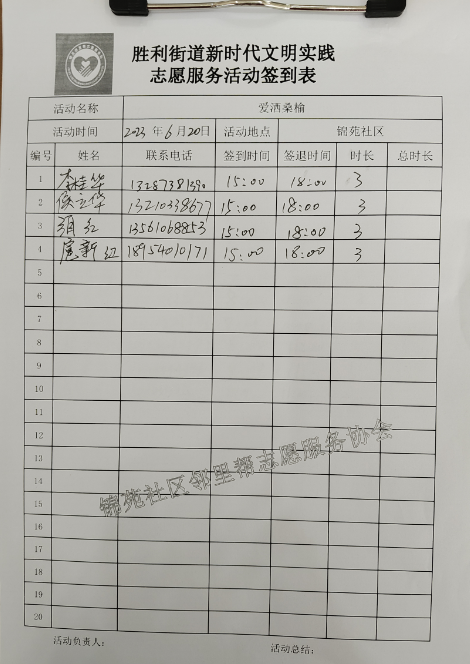 胜利街道新时代文明实践
志愿服务活动签到表
活动名称 爱洒桑榆
活动时间 2023 年 6月20日 活动地点 锦苑社区
编号 姓名 联系电话 签到时间 签退时间 时长 总时长
1 李桂华 15:00 18:00 3
2 侯立华 13210338677 15:00 18:00 3
3 红 13561068853 15:00 18:00 3
4 扈新红 18954010171 15:00 18:00 3
5
6
7
8
9
10
11
12
13
14
15
16
17
18
19
20
锦苑社区邻里帮志愿服务协会
活动负责人: 活动总结: